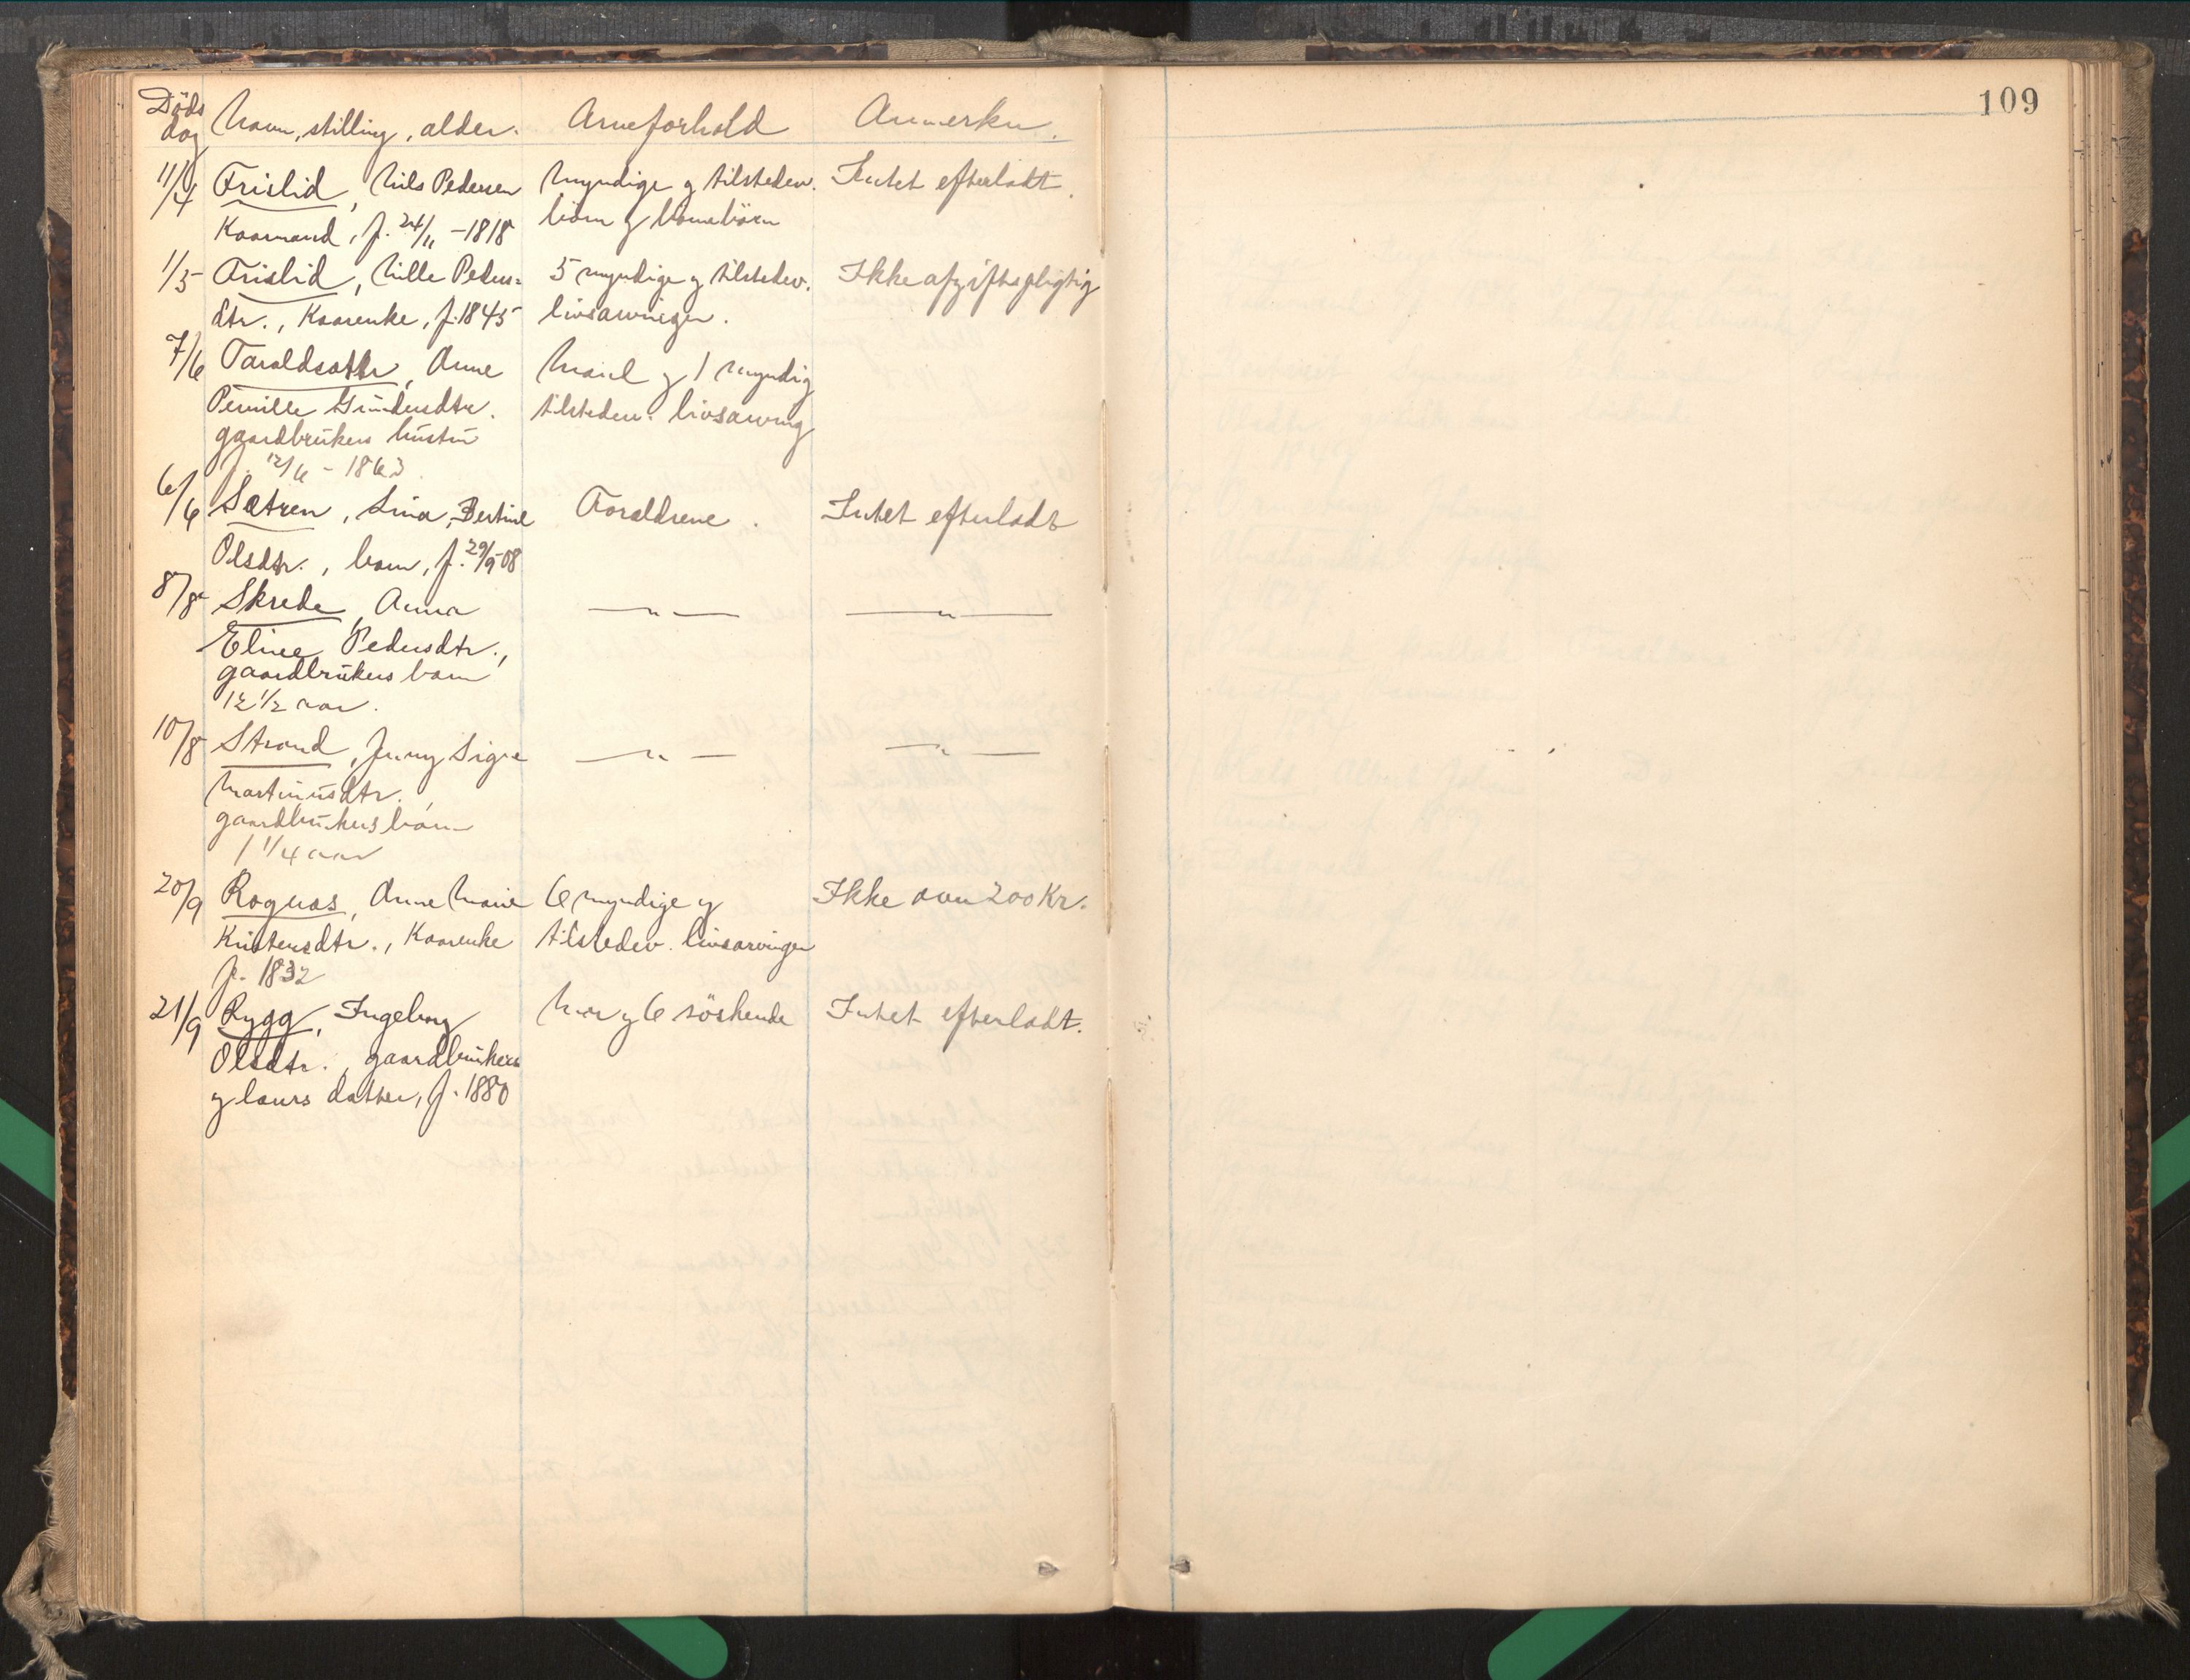 109
Döds
dag Navn, stilling, alder. Arveforhold Anmerkn.
11/4 Frislid, Nils Pedersen Myndige og tilstedev. Intet efterladt.
Kaarmand, f. 24/11 -1818 börn og barnebörn
1/5 Frislid, Nille Peders= 5 myndige og tilstedev. Ikke afgiftspligtig
dtr., Kaarenke, f. 1845 livsarvinger.
7/6 Taraldsæter, Anne Mand og 1 myndig
Pernille Gundersdtr. tilstedev. livsarving
gaardbrukers hustru
f. 12/6 - 1863
6/6 Sætren, Lina Bertine Forældrene. Intet efterladt
Olsdtr., barn, f. 29/9-08
8/8 Skrede, Anna — " — — " —
Eline Pedersdtr.,
gaardbrukers barn
12 1/2 aar.
10/8 Strand, Jenny Signe — " — — " —
Martinusdtr.,
gaardbrukers barn
1 1/4 aar
20/9 Rognes, Anne Marie 6 myndige og Ikke over 200 Kr.
Kristensdtr., Kaarenke tilstedev. livsarvinger
f. 1832
21/9 Rygg, Ingeborg Mor og 6 söskende Intet efterladt.
Olsdtr., gaardbrukers
og datter, f. 1880